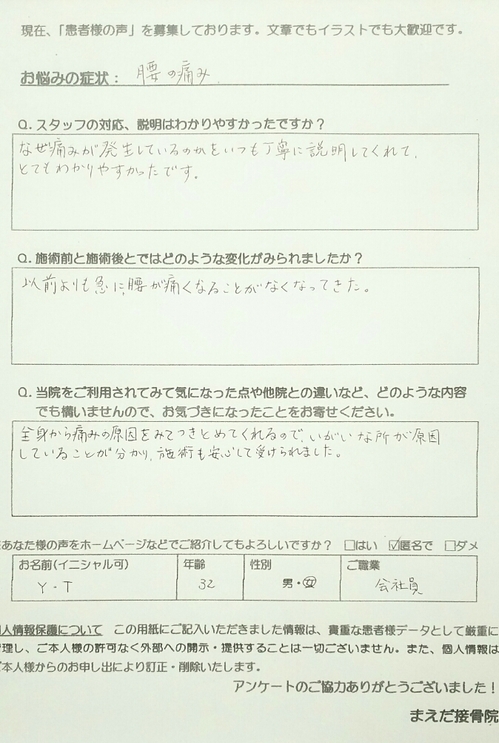 現在、「患者様の声」を募集しております。文章でもイラストでも大歓迎です。
お悩みの症状: 腰の痛み
Q. スタッフの対応、説明はわかりやすかったですか?
なぜ痛みが発生しているのかをいつも丁寧に説明してくれて、
とてもわかりやすかったです。
Q. 施術前と施術後とではどのような変化がみられましたか?
以前よりも急に、腰が痛くなることがなくなってきた。
Q. 当院をご利用されてみて気になった点や他院との違いなど、どのような内容
でも構いませんので、お気づきになったことをお寄せください。
全身から痛みの原因をみてつきとめてくれるので、いがいな所が原因
していることが分かり、施術も安心して受けられました。
あなた様の声をホームページなどでご紹介してもよろしいですか? □はい ☑匿名で □ダメ
お名前(イニシャル可) 年齢 性別 ご職業
Y・T 32 男・女 会社員
個人情報保護について この用紙にご記入いただきました情報は、貴重な患者様データとして厳重に
管理し、ご本人様の許可なく外部への開示・提供することは一切ございません。また、個人情報は
ご本人様からのお申し出により訂正・削除いたします。
アンケートのご協力ありがとうございました!
まえだ接骨院